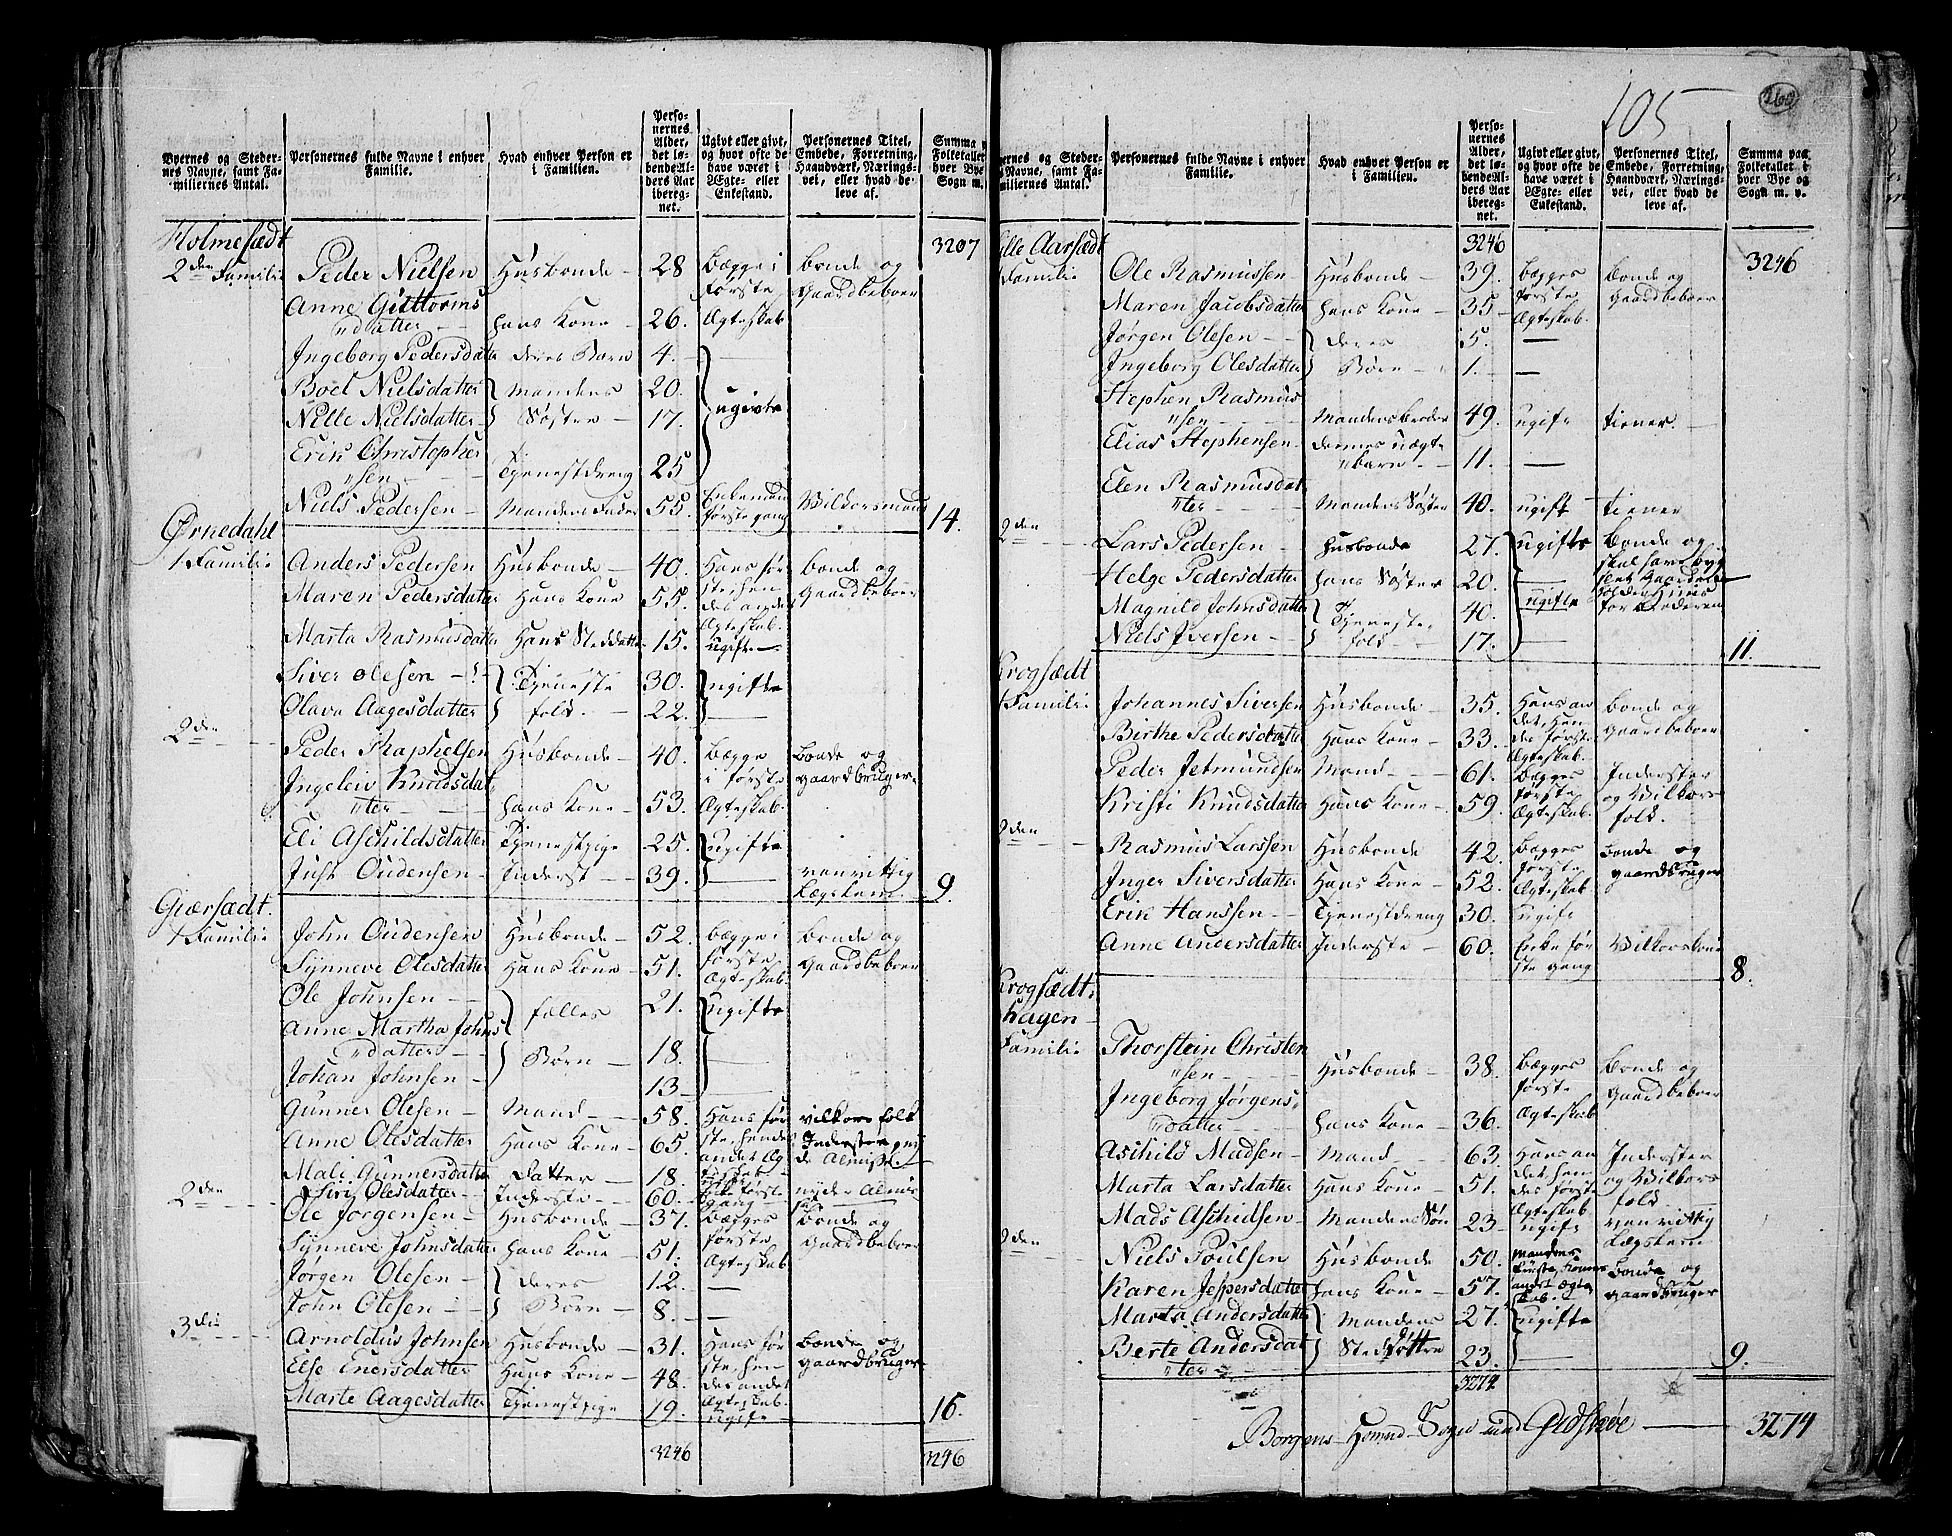 105
260
Byernes og Stedernes Navne, samt Familiernes Antal.
Personernes fulde Navne i enhver Familie.
Hvad enhver Person er i Familien.
Personernes Alder, det løbende Alders Aar iberegnet.
Ugivt eller givt, og hvor ofte de have været i Ægte- eller Enkestand.
Personernes Titel, Embede, Forretning, Haandværk, Næringsvei, eller hvad de leve af.
Summa
Folketallet
hver Bye
Sogn m.
3207
Holmesædt
2den Familie
Peder Nielsen Husbonde 28 Begge i første Ægteskab Bonde og Gaardbeboer
Anne Guttorms
datter hans Kone 26.
Ingeborg Pedersdatter deres Barn 4.
Boel Nielsdatter Mandens 20. ugivte
Nille Nielsdatter Søster 17.
Erik Christopher
sen Tjenestdreng 25
Niels Pedersen Mandens Fader 55. Enkemand første gang Vilkorsmand 14.
Ørnedahl
1 Familie
Anders Pedersen Husbonde 40. Hans første, hendes andet Ægteskab. Bonde og Gaardbeboer
Maren Pedersdatter Hans Kone 55.
Marta Rasmusdatter Hans Steddatter 15. ugift
Siver Olesen Tjeneste 30. ugifte
Olava Aagesdatter folk. 22.
2den
Peder Raphelsen Husbonde 40. Begge i første Ægteskab Bonde og Gaardbruger
Ingeleiv Knudsdat
ter hans Kone 53.
Eli Aschildsdatter Tjenestpige 25. ugifte
Just Oudensen Inderst 39. vanvittig Lægslem 9.
Giærsædt.
1 Familie
John Oudensen Husbonde 52. Begge i første Ægteskab. Bonde og Gaardbeboer
Synneve Olesdatter Hans Kone 51.
Ole Johnsen fælles 21. ugifte
Anne Martha Johns
datter Børn 18.
Johan Johnsen 13
Gunner Olesen Mand 58. Hans første, hendes andet Ægteskab vilkors folk
Anne Olesdatter Hans Kone 65. Inderster
Mali Gunnersdatter datter 18.
Siri Olesdatter Inderste 60. Enke første gang nyder Almisse
2den
Ole Jorgensen Husbonde 37. Begges første Ægteskab Bonde og Gaardbeboer
Synneve Johnsdatter hans Kone 51.
Jørgen Olesen deres 12.
John Olesen Børn 8.
3die
Arnoldus Johnsen Husbonde 31. Hans første, hendes andet Ægteskab. Bonde og Gaardbruger
Else Enersdatter Hans Kone 48.
Marte Aagesdatter Tjenestpige 19. ugift 16.
3246 3246
ernes og Steder-
s Navne, samt Fa-
miliernes Antal.
Personernes fulde Navne i enhver Familie.
Hvad enhver Person er i Familien.
Personernes Alder, det løbende Alders Aar iberegnet.
Ugivt eller givt, og hvor ofte de have været i Ægte- eller Enkestand.
Personernes Titel, Embede, Forretning, Haandværk, Næringsvei, eller hvad de leve af.
Summa paa Folketallet i hver Bye og Sogn m. v.
3246 3246
ille Aarsædt
Familie
Ole Rasmussen Husbonde 39. Begges første Ægteskab. Bonde og Gaardbeboer
Maren Jacobsdatter hans Kone 35
Jørgen Olesen deres 5.
Ingeborg Olesdatter Børn 1.
Stephen Rasmus
sen Mandens broder 49. ugift tiener.
Elias Stephensen dennes uægte
barn 11.
Elen Rasmusdat
ter Mandens Søster 40. ugift tiener
2den
Lars Pedersen husbonde 27. ugifte Bonde og
Helge Pedersdatter hans Søster 20.
Magnild Johnsdatter Tjeneste 40. ugifte
Niels Iversen folk 17. 11.
Krogsædt
1 Familie
Johannes Siversen Husbonde 35. Hans andet, hendes første Ægteskab. Bonde og Gaardbeboer
Birthe Pedersdatter Hans Kone 33.
Peder Jetmundsen Mand 61. Begges første Ægteskab. Inderster og Vilkors folk.
Kristi Knudsdatter Hans Kone 59.
2den
Rasmus Larssen Husbonde 42. Begges første Ægteskab Bonde og Gaardbruger
Inger Siversdatter Hans Kone 52.
Erik Hanssen Tjenestdreng 30. ugift
Anne Andersdatter Inderste 60. Enke første gang Vilkorskone 8.
Krogsædt.
hagen
Familie
Thorstein Christen
sen Husbonde 38. Begges første Ægteskab Bonde og Gaardbeboer
Ingeborg Jørgens
datter hans Kone 36.
Aschild Madsen Mand 63. Hans andet, hendes første Ægteskab Inderster og Vilkors folk
Marta Larsdatter Hans Kone 51.
Mads Aschildsen Mandens Søn 23. ugift vanvittig Lægslem
2den
Niels Poulsen Husbonde 50. Mandens første, Konens andet Ægteskab. Bonde og Gaardbruger
Karen Jespersdatter hans Kone 57.
Marta Andersdatter Mandens 27. ugifte
Berte Andersdat
ter Steddøttre 23. 9.
3274
Borgens Sogn 3274